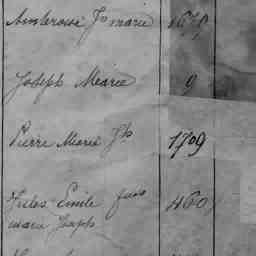 Ambroise Jh marie 1679
Joseph Marie 9
Pierre Marie Jh 1709
Jules Emile 460
marie Joseph